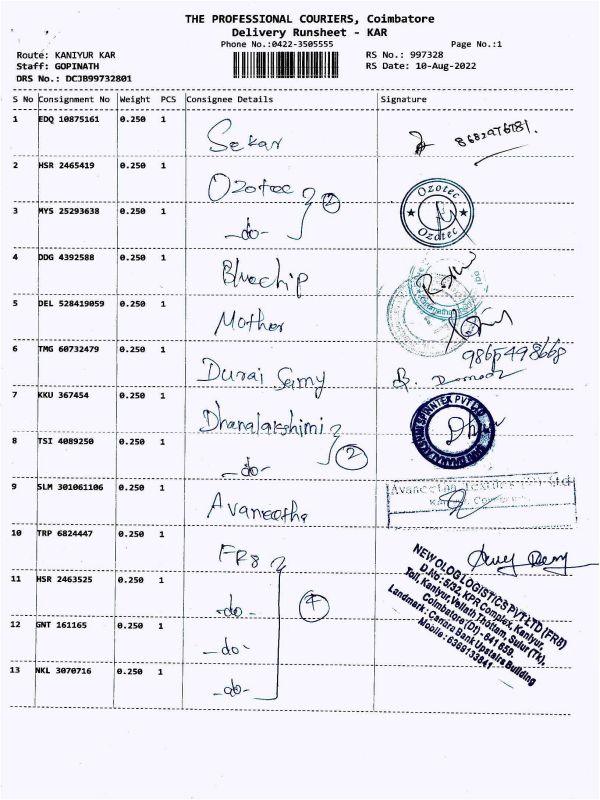 THE PROFESSIONAL COURIERS, Coimbatore
Delivery Runsheet - KAR
Phone No.:0422-3505555
Page No.:1
Route: KANIYUR KAR
RS No.: 997328
Staff: GOPINATH
RS Date: 10-Aug-2022
DRS No.: DCJB99732801
S No Consignment No Weight PCS Consignee Details Signature
1 EDQ 10875161 0.250 1 Sekar
2 HSR 2465419 0.250 1 Ozotec 2
Ozotec
3 MYS 25293638 0.250 1 -do-
Ozotec
4 DDG 4392588 0.250 1 Bluechip
5 DEL 528419059 0.250 1 Mother
6 TMG 60732479 0.250 1 Durai Samy
9865498668
7 KKU 367454 0.250 1 Dhanalakshimi
8 TSI 4089250 0.250 1 -do- 2
9 SLM 301061106 0.250 1 Avaneetha
10 TRP 6824447 0.250 1 FR8
11 HSR 2463525 0.250 1 -do- 4
12 GNT 161165 0.250 1 -do-
13 NKL 3070716 0.250 1 -do-
NEW OLOG LOGISTICS PVT LTD (FR8)
D.No: 5/32, KPR Complex, Kaniyur,
Toll, Kaniyur, Vellath Thottam, Sulur (TK),
Coimbatore (Dt) - 641 659.
Landmark: Canara Bank Upstairs Building
Mobile: 6369133841